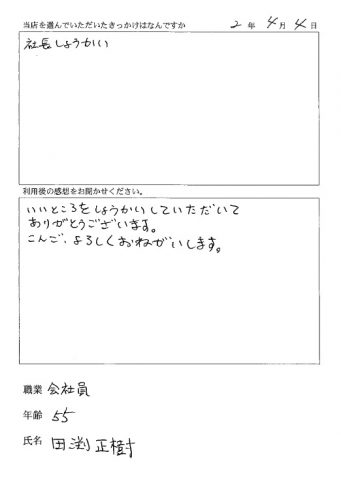 当店を選んでいただいたきっかけはなんですか 2年 4月 4日
社長しょうかい
利用後の感想をお聞かせください。
いいところをしょうかいしていただいて
ありがとうございます。
こんご、よろしくおねがいします。
職業 会社員
年齢 55
氏名 田渕 正樹